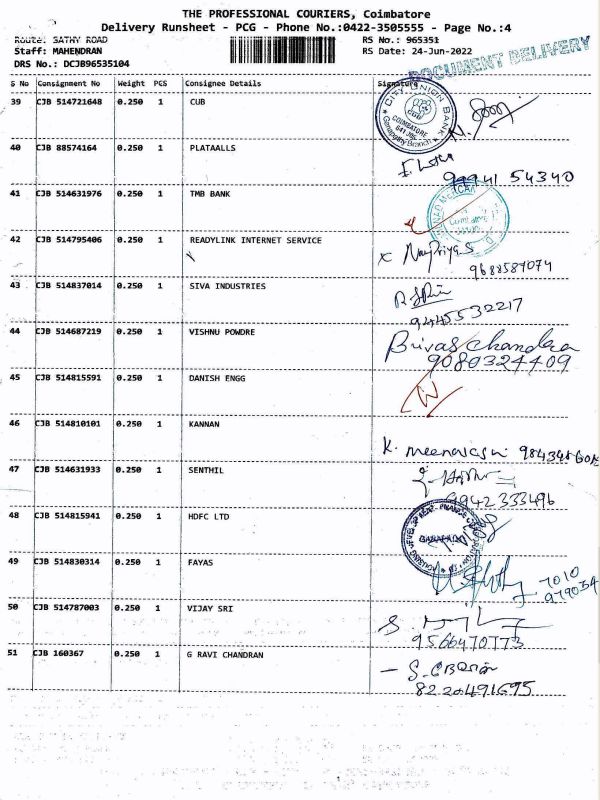 THE PROFESSIONAL COURIERS, Coimbatore
Delivery Runsheet - PCG - Phone No.:0422-3505555 - Page No.:4
Route: SATHY ROAD RS No.: 965351
Staff: MAHENDRAN RS Date: 24-Jun-2022
DRS No.: DCJB96535104
DOCUMENT DELIVERY
S No Consignment No Weight PCS Consignee Details Signature
39 CJB 514721648 0.250 1 CUB
CITY UNION BANK
CUB
COIMBATORE
Ganapathy Branch
40 CJB 88574164 0.250 1 PLATAALLS
99941 54340
41 CJB 514631976 0.250 1 TMB BANK
42 CJB 514795406 0.250 1 READYLINK INTERNET SERVICE
9688587074
43 CJB 514837014 0.250 1 SIVA INDUSTRIES
9445532217
44 CJB 514687219 0.250 1 VISHNU POWDRE
9080324409
45 CJB 514815591 0.250 1 DANISH ENGG
46 CJB 514810101 0.250 1 KANNAN
47 CJB 514631933 0.250 1 SENTHIL
9942333496
48 CJB 514815941 0.250 1 HDFC LTD
49 CJB 514830314 0.250 1 FAYAS
7010
979054
50 CJB 514787003 0.250 1 VIJAY SRI
9566470773
51 CJB 160367 0.250 1 G RAVI CHANDRAN
8220491695